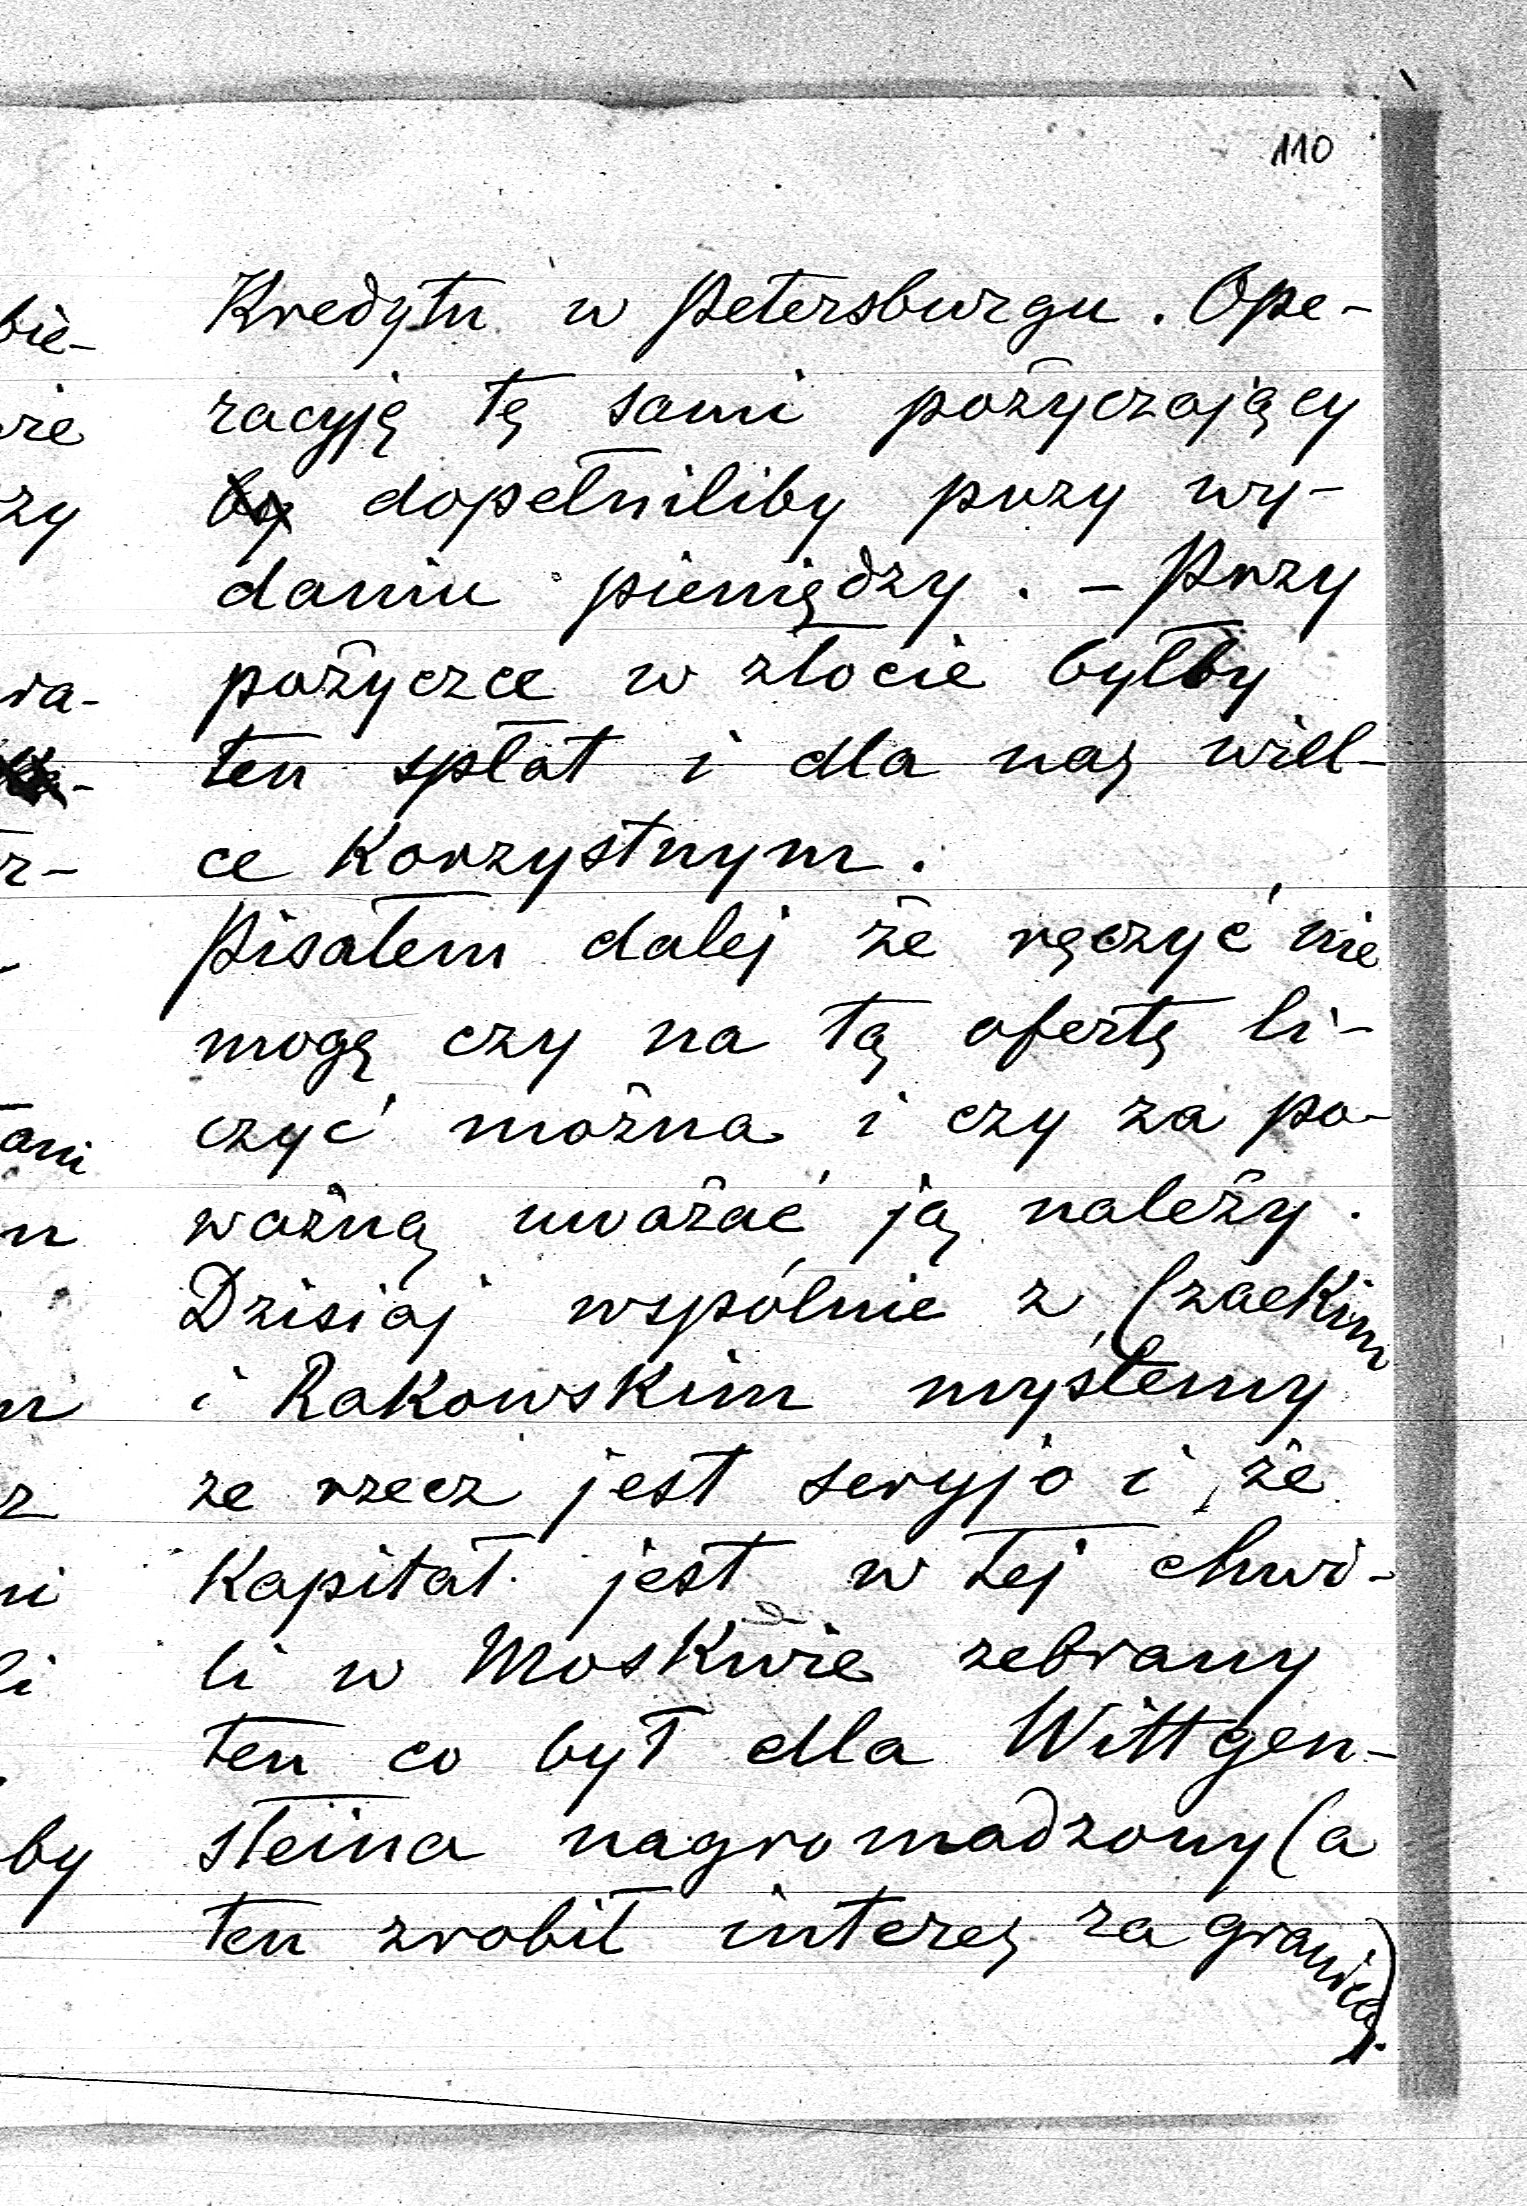 110
Kredytu w Petersburgu. Ope-
racyję tę sami pożyczający
by dopełniliby przy wy-
daniu pieniędzy. - Przy
pożyczce w złocie byłby
ten spłat i dla nas wiel-
ce korzystnym.
Pisałem dalej że ręczyć nie
mogę czy na tą ofertę li-
czyć można i czy za po-
ważną uważać ją należy.
Dzisiaj wspólnie z Czackim
i Rakowskim myślemy
że rzecz jest seryjo i że
Kapitał jest w tej chwi-
li w Moskwie zebrany
ten co był dla Wittgen-
steina nagromadzony (a
ten zrobił interes za granicą).
bie-
zy
ra-
by